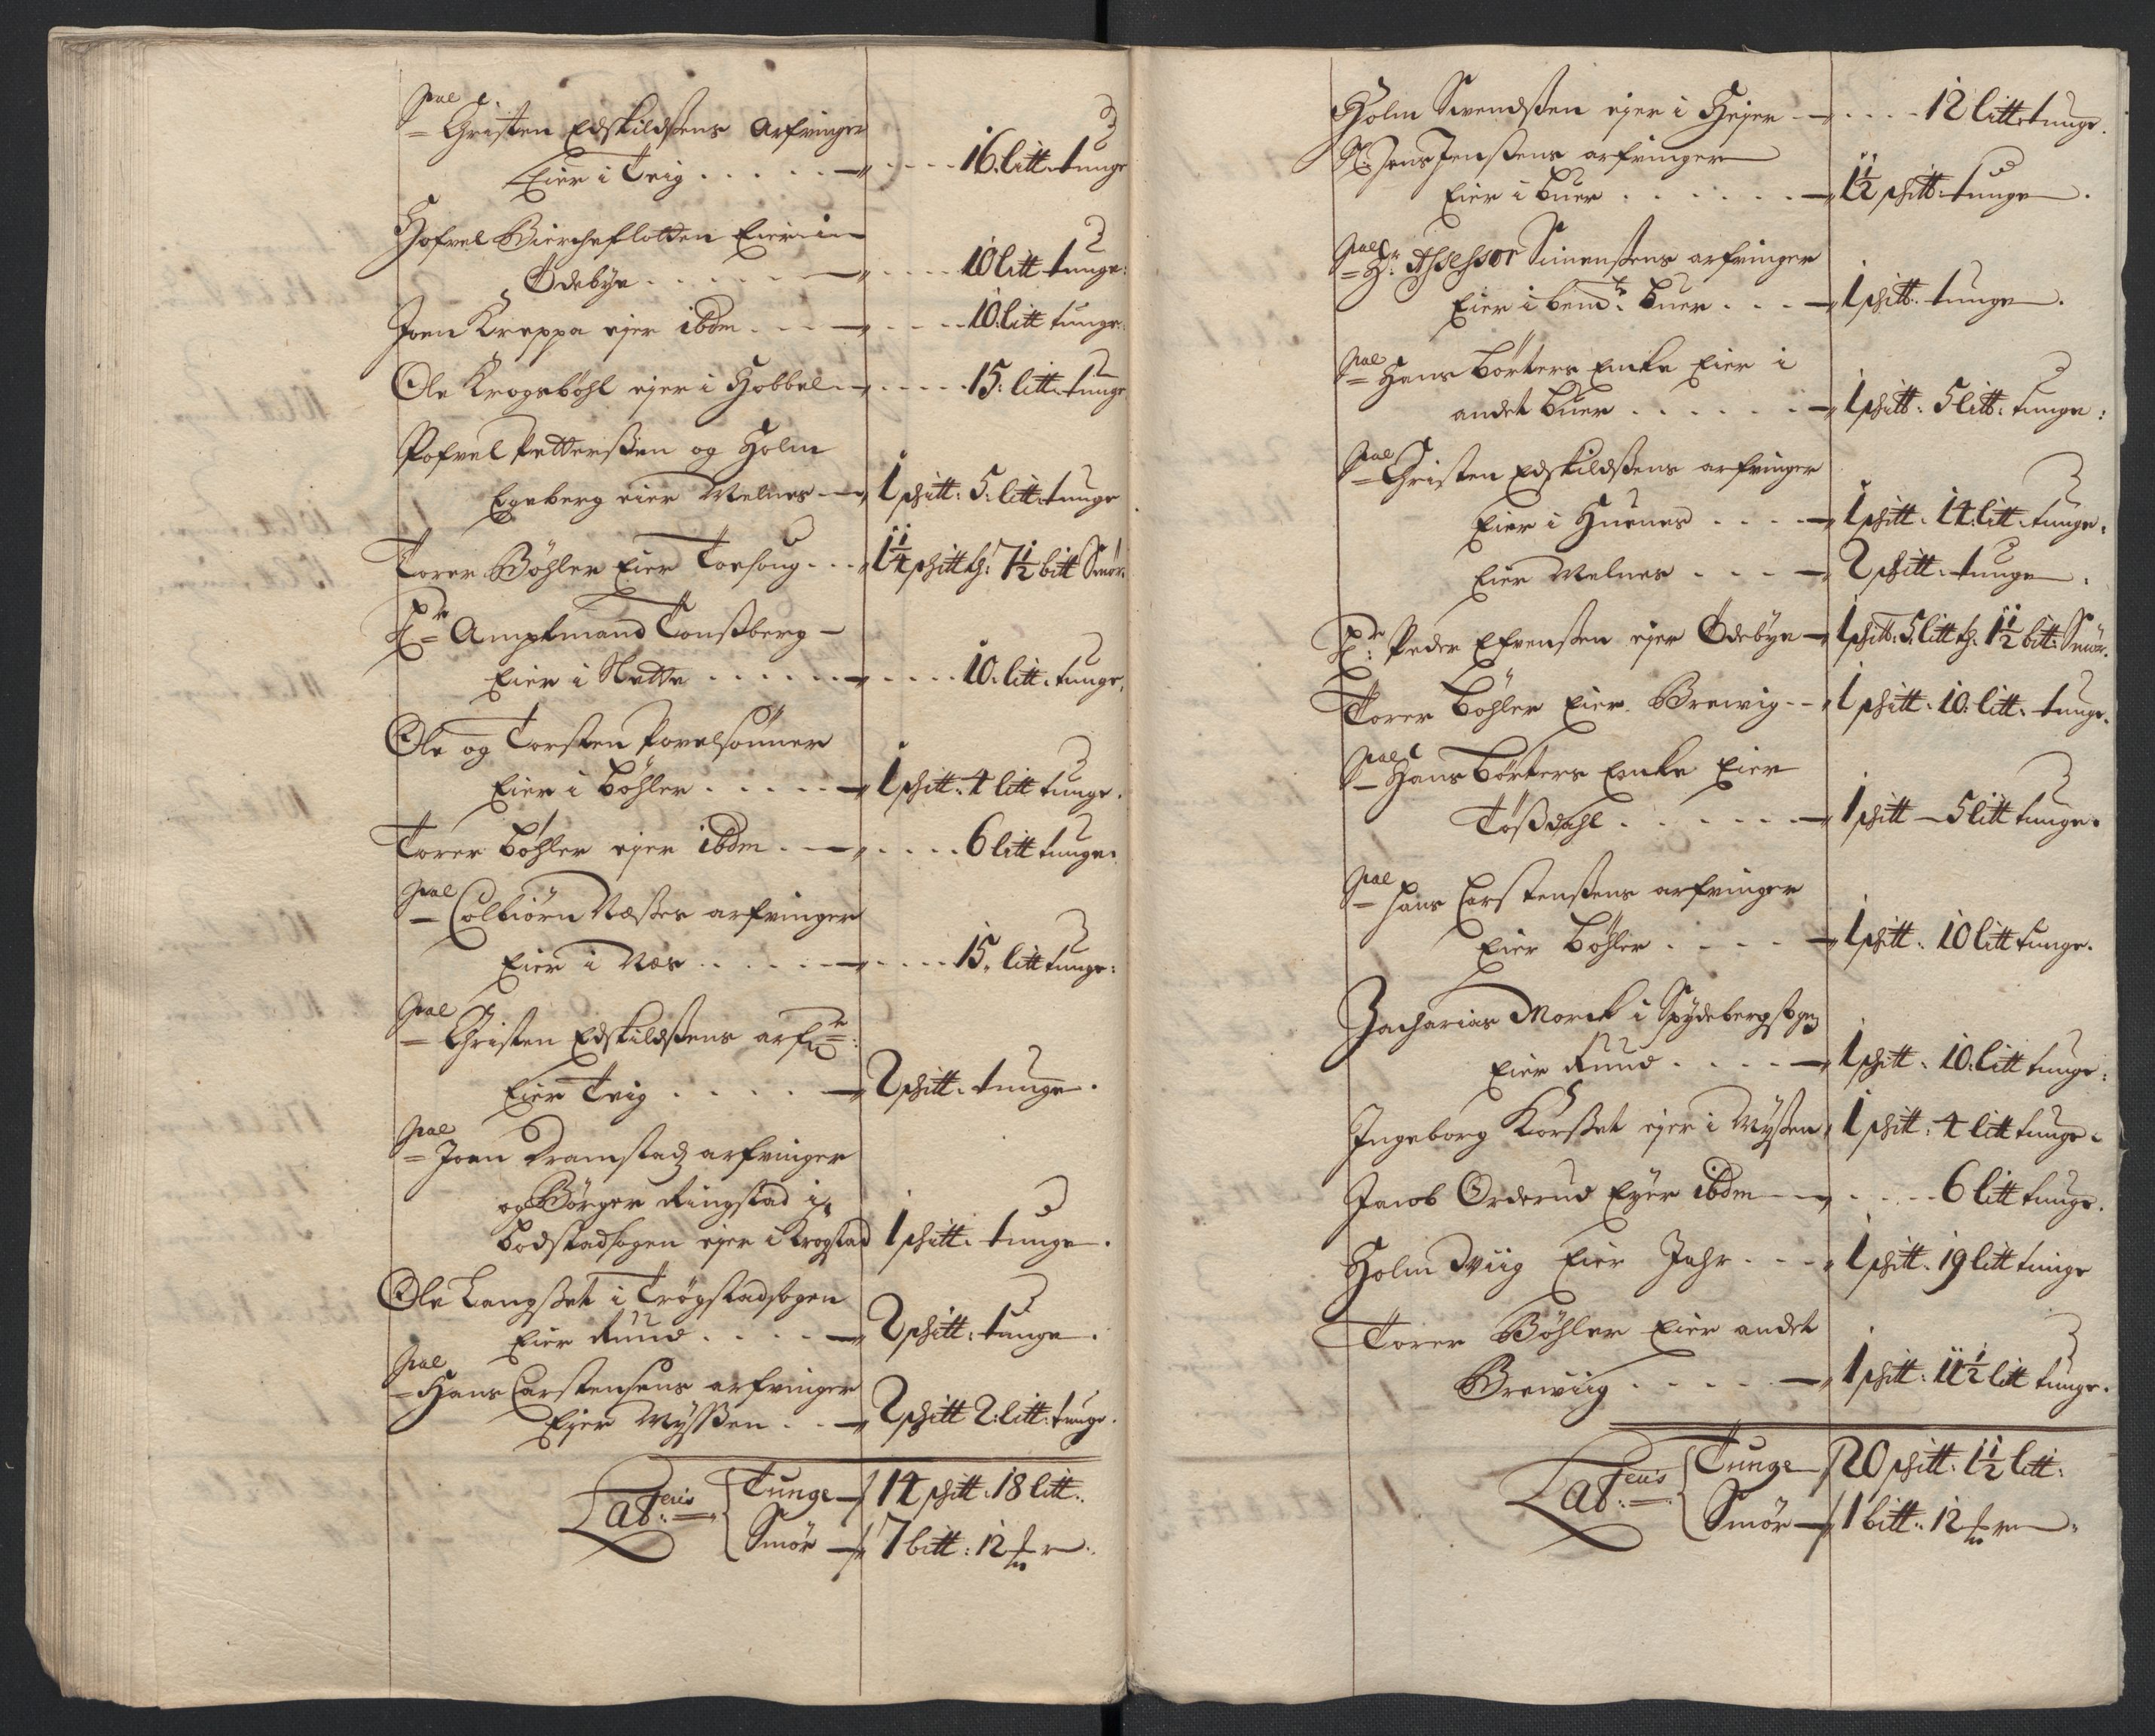 Sal
Christen Edskildßens Arfvinger
Eier i Tvig . . . . . — 16. litt. tunge
Hofvel Biercheflotten Eier i
Ödebye . . . . . — 10 litt tunge.
Joen Kreppa ejer ibdm . . — . . 10. litt tunge.
Ole Krogsböhl ejer i Hobbel — . . . 15. litt. tunge
Pofvel Petterßen og Holm
Egeberg eier Melnes — 1 schitt: 5. litt. tunge
Torer Böhler Eier Torsoug . . . 1 1/4 schitt th: 7 1/2 bitt Smör.
Hr Amptmand Tonßberg —
Eier i Slette . . . . . . — . . . . 10. litt. tunge.
Ole og Torsten Povelsönner
Eier i Böhler . . . . . — 1 schitt. 4 litt tunge.
Torer Böhler ejer ibdm . — . . . . 6 litt tunge.
Sal
Colbiörn Næßes arfvinger
Eier i Næs . . . . . — . . . . 15. litt tunge.
Sal
Christen Edskildßens arfv:
Eier Tvig . . . . . — 2 schitt. tunge.
Sal
Joen Dramstad arfvinger
og Börger Ringstad i
Bodstadsogen ejer i Krogstad 1 schitt. tunge.
Ole Langßet i Trögstadsogen
Eier Ruud . . . . — 2 schitt: tunge.
Sal
Hans Carstensens arfvinger
Ejer Myßen . . — 2 schitt 2: litt: tunge.
Lateris Tunge — 14 schitt. 18 litt.
Smör — 7 bitt: 12
Holm Svendßen ejer i Hejer — . . . . 12 litt tunge.
Sl: Jens Jenßens arfvinger
Eier i Buer . . . . . . — 1 1/2 schitt. tunge.
Sal
Hr: Assessor Simenßens arfvinger
Eier i bemte: Buer . . . — 1 schitt. tunge.
Sal
Hans Börters Enke Eier i
andet Buer . . . . . . — 1 schitt. 5 litt. tunge.
Sal
Christen Edskildßens arfvinger
Eier i Huenes . . . . — 1 schitt. 14. litt. tunge.
Eier Melnes . . . — 2 schitt. tunge.
Hr: Peder Efvenßen ejer Ödebye — 1 schitt. 5 litt th. 1 1/2 bitt. Smör.
Torer Böhler Eier Brevig — 1 schitt. 10. litt. tunge.
Sal
Hans Börters Enke Eier
Tößdahl . . . . . . — 1 schitt — 5 litt tunge.
Sal
Hans Carstenßens arfvinger
Eier Böhler . . . . — 1 schitt. 10 litt tunge.
Zacharias Morck i Spydebergsogen
Eier Ruud . . . . — 1 schitt. 10. litt tunge.
Ingeborg Korßet ejer i Myßen 1 schitt. 4 litt tunge.
Jacob Orderud Ejer ibdm — . . . . 6 litt tunge.
Holm Wiig Eier Jahr . . . 1 schitt. 19 litt tunge
Torer Böhler Eier andet
Breviig . . . . . — 1 schitt. 11 1/2 litt tunge.
Lateris Tunge — 20 schitt. 1 1/2 litt:
Smör — 1 bitt. 12